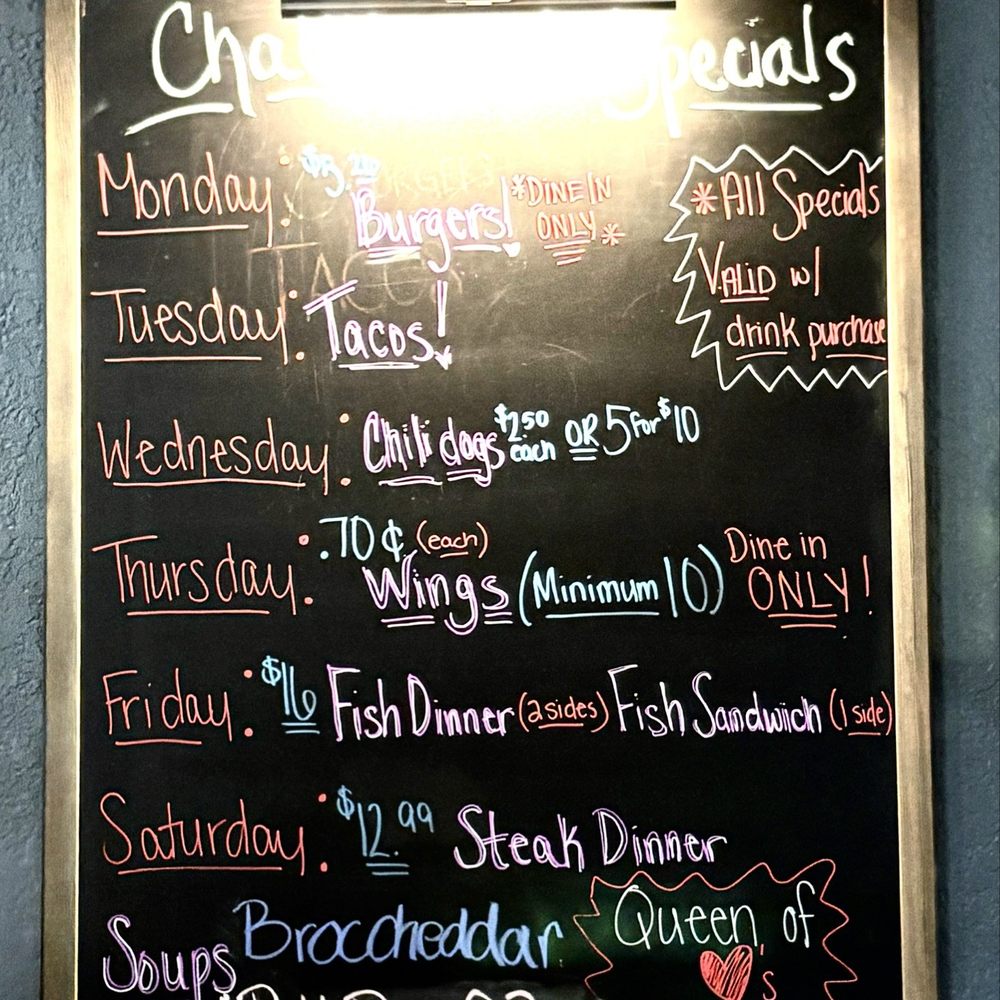 Specials
Monday: Burgers! *DINE IN ONLY*
*All Specials
VALID w/
drink purchase
Tuesday: Tacos!
Wednesday: Chili dogs $2.50 each OR 5 for $10
Thursday: .70¢ (each) Wings (Minimum 10) Dine in ONLY!
Friday: $16 Fish Dinner (2 sides) Fish Sandwich (1 side)
Saturday: $12.99 Steak Dinner
Soups Broccheddar
Queen of
♥'s